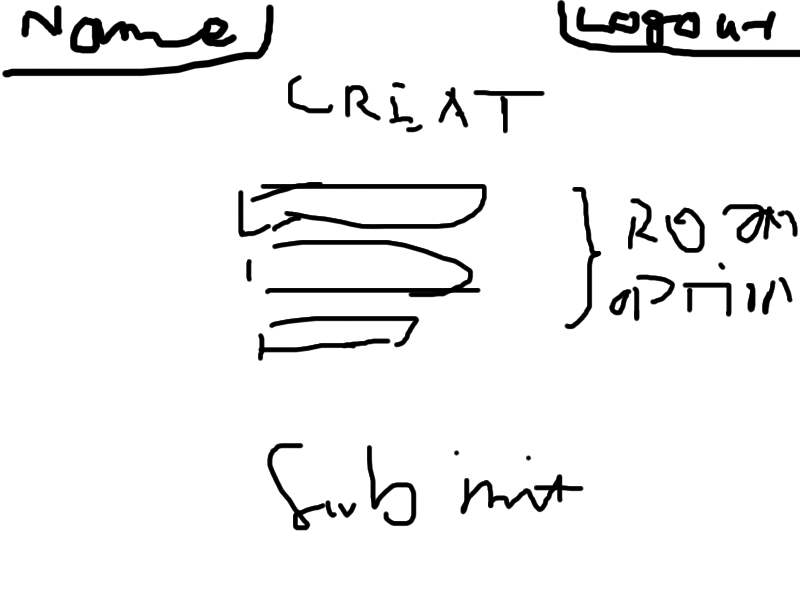 Name Logout
CREAT
ROOM
OPTIN
Submit